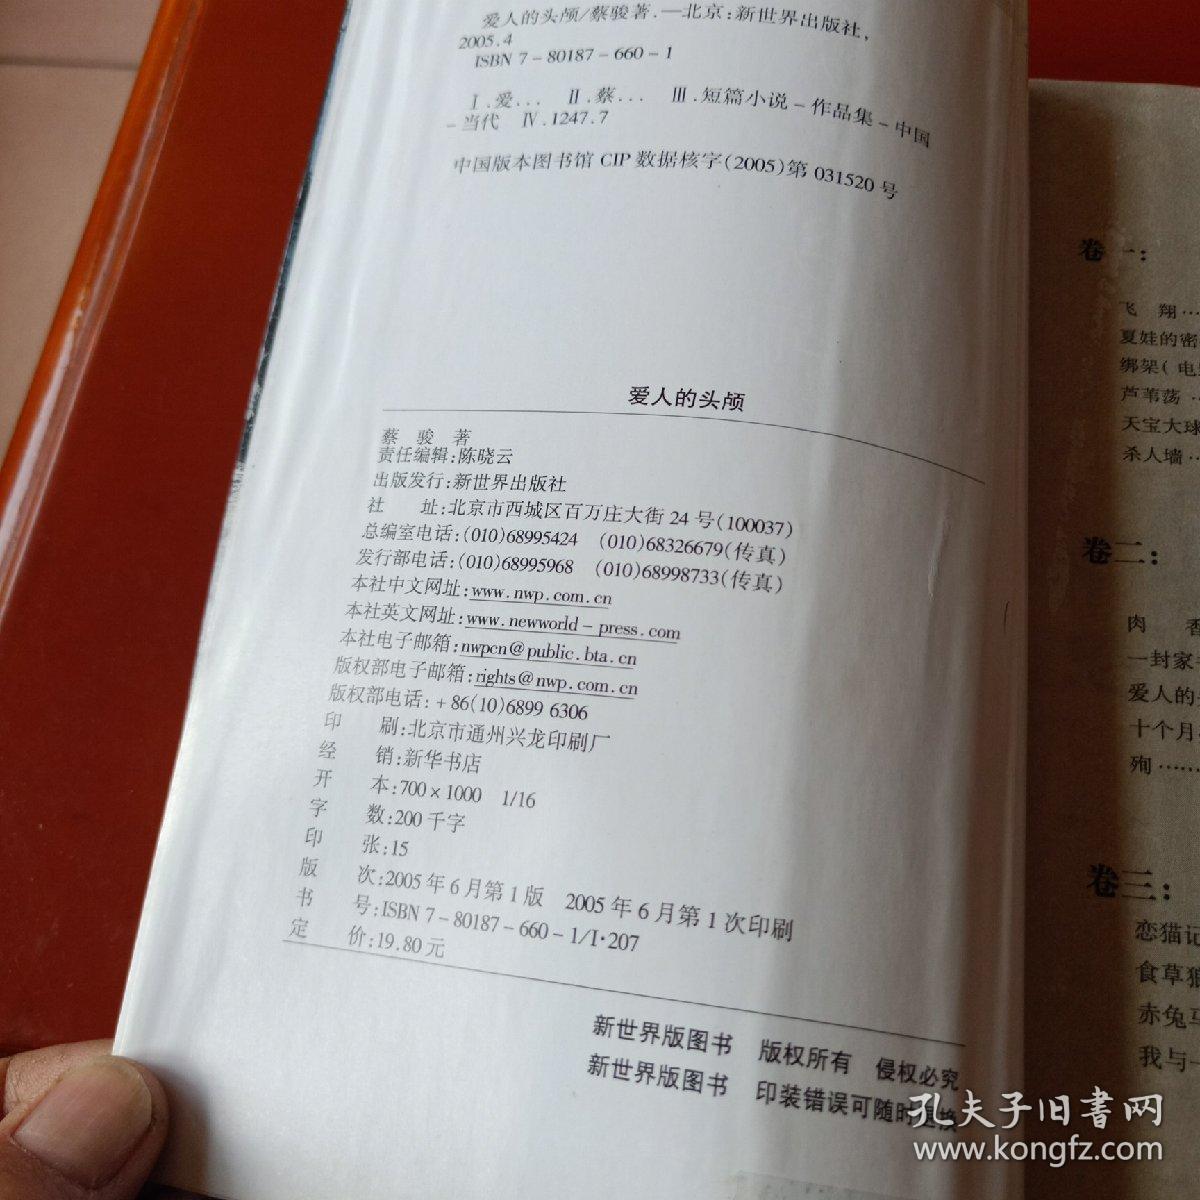 爱人的头颅/蔡骏著.—北京:新世界出版社,
2005.4
ISBN 7-80187-660-1
Ⅰ.爱... Ⅱ.蔡... Ⅲ.短篇小说-作品集-中国
-当代 Ⅳ.1247.7
中国版本图书馆 CIP 数据核字(2005)第 031520 号
爱人的头颅
蔡 骏 著
责任编辑:陈晓云
出版发行:新世界出版社
社 址:北京市西城区百万庄大街 24 号(100037)
总编室电话:(010)68995424 (010)68326679(传真)
发行部电话:(010)68995968 (010)68998733(传真)
本社中文网址:www.nwp.com.cn
本社英文网址:www.newworld-press.com
本社电子邮箱:nwpcn@public.bta.cn
版权部电子邮箱:rights@nwp.com.cn
版权部电话:+86(10)6899 6306
印 刷:北京市通州兴龙印刷厂
经 销:新华书店
开 本:700×1000 1/16
字 数:200千字
印 张:15
版 次:2005年6月第1版 2005年6月第1次印刷
书 号:ISBN 7-80187-660-1/I·207
定 价:19.80元
新世界版图书 版权所有 侵权必究
新世界版图书 印装错误可随时退换
卷一:
飞 翔…
夏娃的密
绑架(电
芦苇荡…
天宝大球
杀人墙…
卷二:
肉 香
一封家
爱人的
十个月
殉……
卷三:
恋猫记
食草狼
赤兔马
我与一
孔夫子旧书网
www.kongfz.com